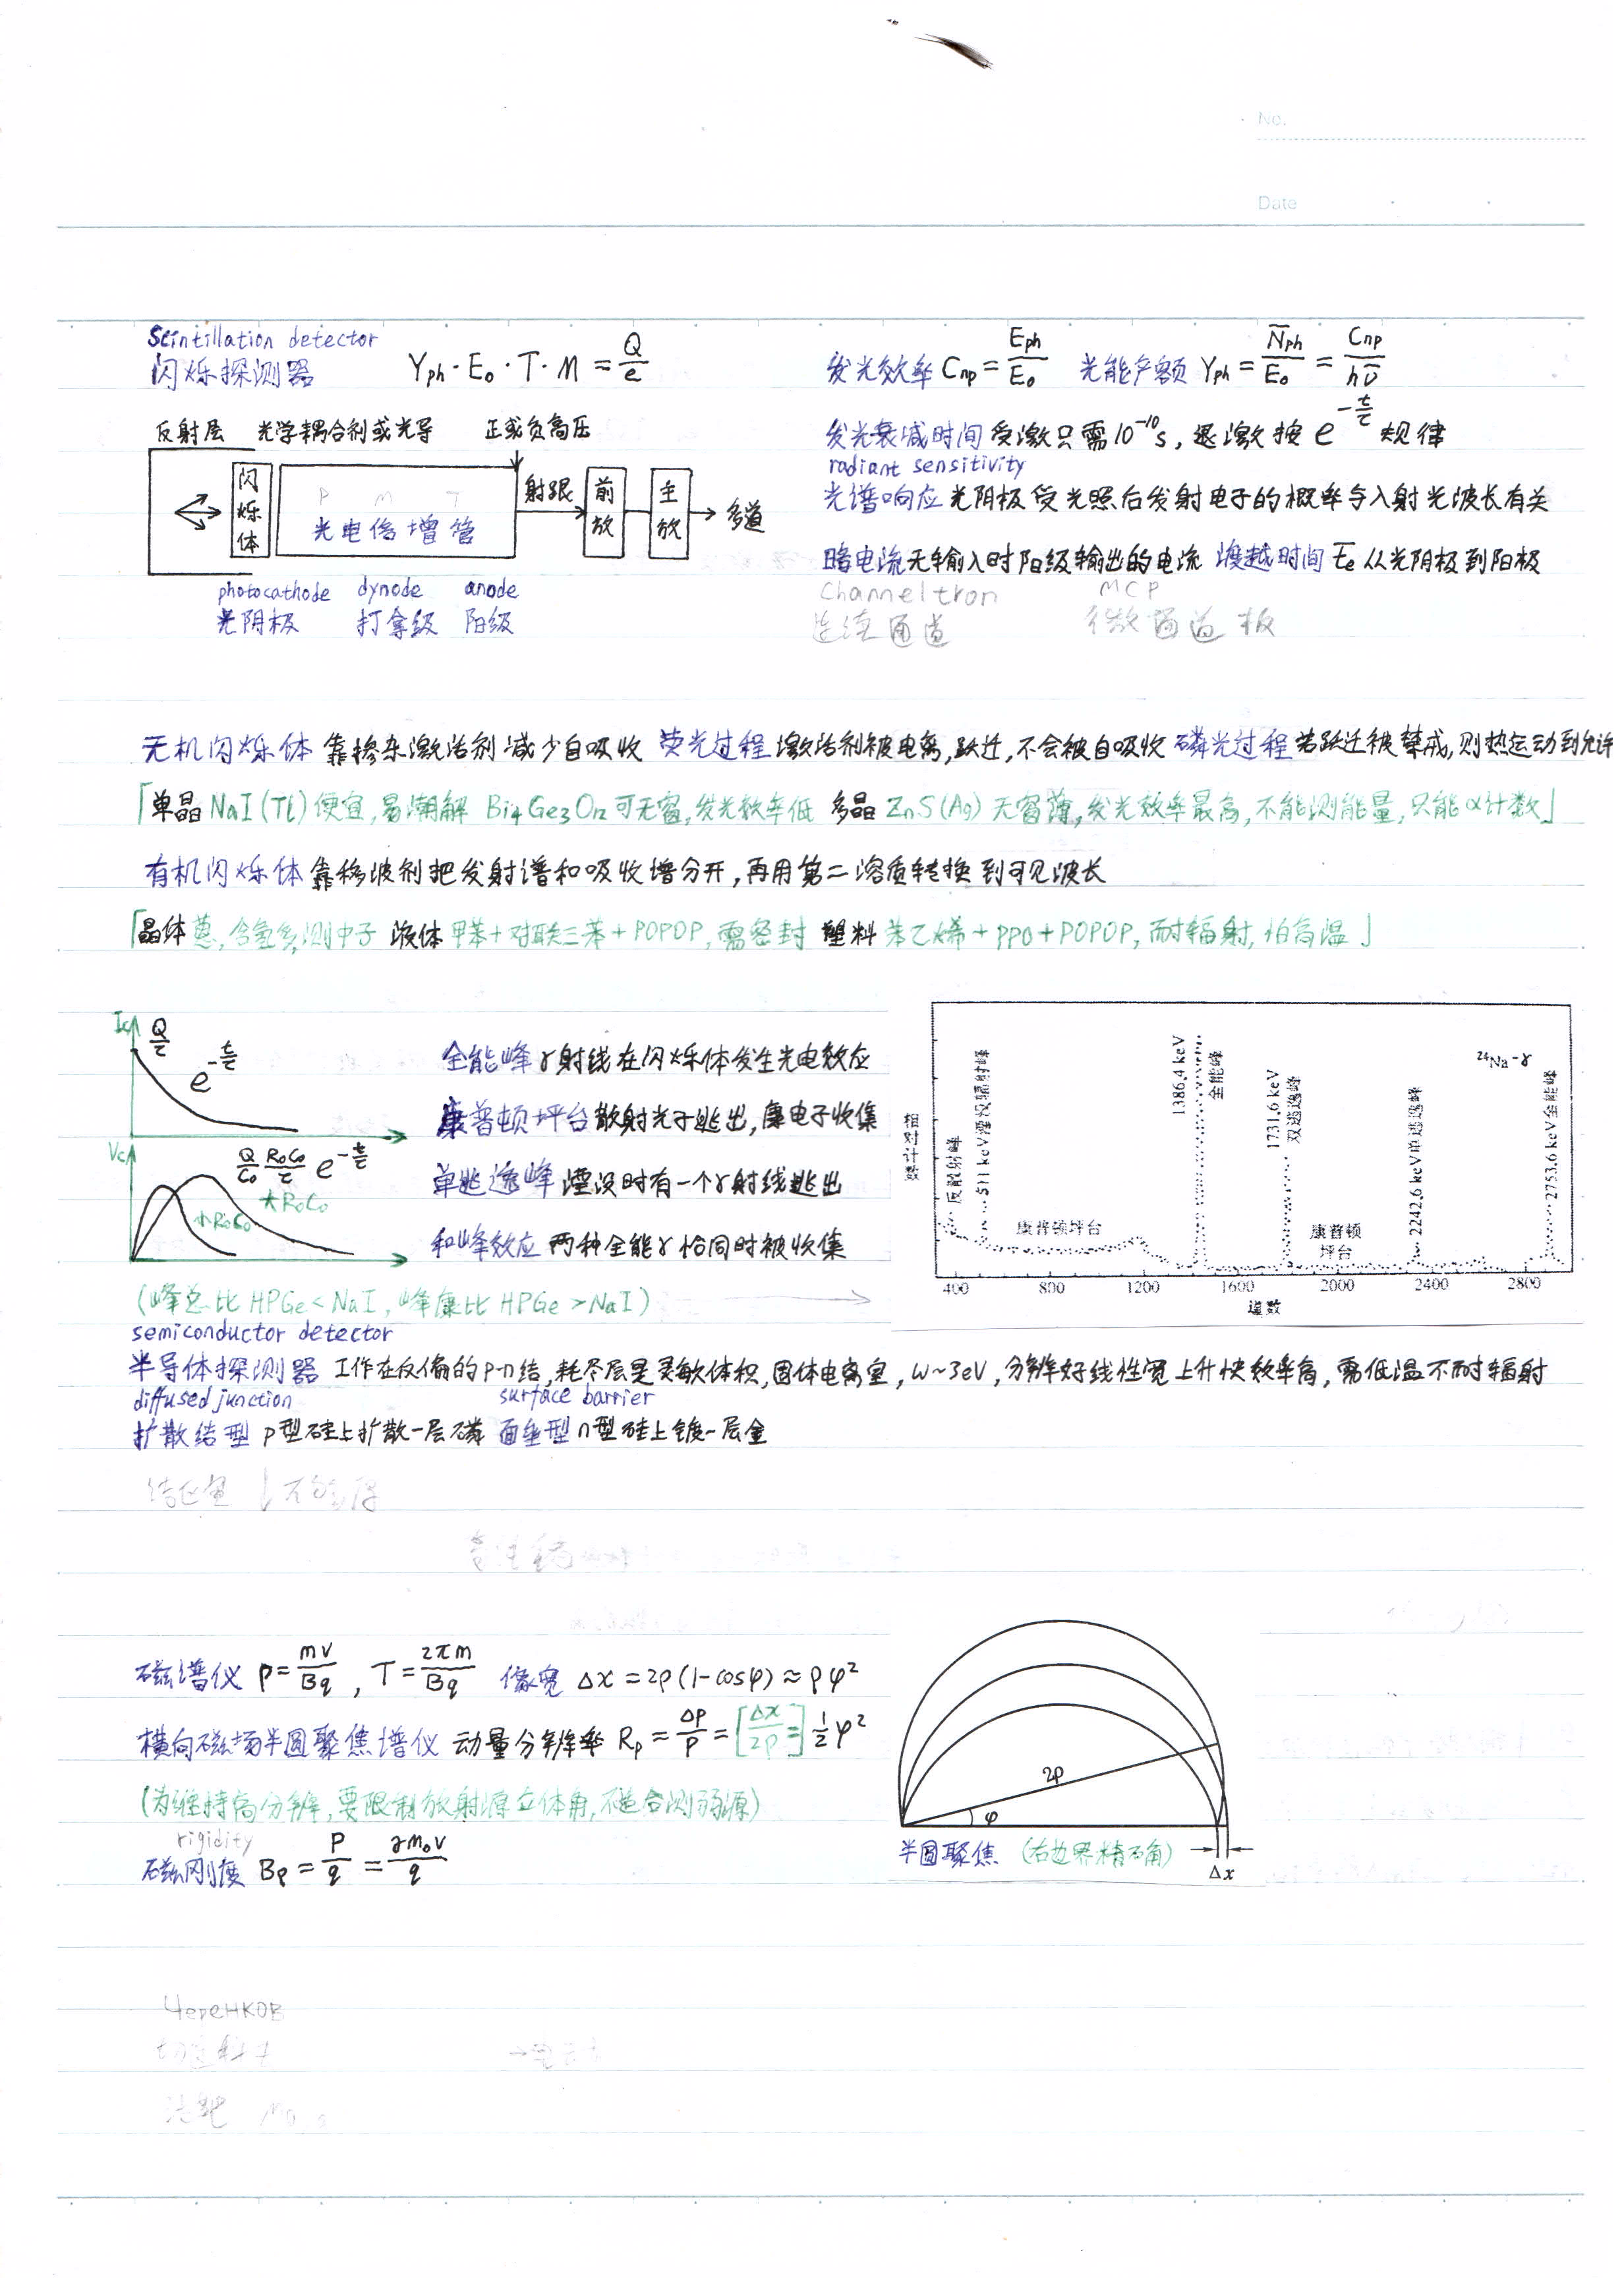 No.
Date
Scintillation detector
闪烁探测器 Yph·E₀·T·M = Q/e
反射层 光学耦合剂或光导 正或负高压
闪烁体 P M T 光电倍增管 射跟 前放 主放 多道
photocathode dynode anode
光阴极 打拿级 阳级
发光效率 Cnp = Eph/E₀ 光能产额 Yph = N̄ph/E₀ = Cnp/hν̄
发光衰减时间 受激只需10⁻¹⁰s, 退激按 e^(-t/τ) 规律
radiant sensitivity
光谱响应 光阴极受光照后发射电子的概率与入射光波长有关
暗电流 无输入时阳级输出的电流 渡越时间 t̄e 从光阴极到阳极
Channeltron MCP
连续通道 微通道板
无机闪烁体 靠掺杂激活剂减少自吸收 荧光过程 激活剂被电离,跃迁,不会被自吸收 磷光过程 若跃迁被禁戒,则热运动到允许
「单晶 NaI(Tl) 便宜,易潮解 Bi₄Ge₃O₁₂ 可无窗,发光效率低 多晶 ZnS(Ag) 无窗薄,发光效率最高,不能测能量,只能α计数」
有机闪烁体 靠移波剂把发射谱和吸收增分开,再用第二溶质转换到可见波长
「晶体 蒽,含氢多,测中子 液体 甲苯+对联三苯+POPOP,需密封 塑料 苯乙烯+PPO+POPOP,耐辐射,怕高温」
Ic Q/τ e^(-t/τ)
Vc Q/C₀ R₀C₀/τ e^(-t/τ)
大R₀C₀
小R₀C₀
全能峰 γ射线在闪烁体发生光电效应
康普顿坪台 散射光子逃出,康电子收集
单逃逸峰 湮没时有一个γ射线逃出
和峰效应 两种全能γ恰同时被收集
(峰总比 HPGe<NaI, 峰康比 HPGe>NaI)
相对计数
反散射峰
511 keV湮没辐射峰
康普顿坪台
1386.4 keV 全能峰
1731.6 keV 双逃逸峰
康普顿坪台
2242.6 keV单逃逸峰
²⁴Na-γ
2753.6 keV全能峰
400 800 1200 1600 2000 2400 2800
道数
semiconductor detector
半导体探测器 工作在反偏的p-n结,耗尽层是灵敏体积,固体电离室, w~3eV, 分辨好线性宽上升快效率高, 需低温不耐辐射
diffused junction surface barrier
扩散结型 p型硅上扩散一层磷 面垒型 n型硅上镀一层金
磁谱仪 ρ = mv/Bq , T = 2πm/Bq 像宽 Δx = 2ρ(1-cosφ) ≈ ρφ²
横向磁场半圆聚焦谱仪 动量分辨率 Rp = Δp/p = [Δx/2ρ =] ½φ²
(为维持高分辨,要限制放射源立体角,不适合测弱源)
rigidity
磁刚度 Bρ = P/q = γm₀v/q
2ρ
φ
半圆聚焦 (右边界精准角)
Δx
Черенков